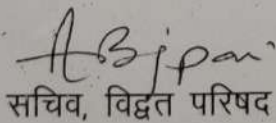 सचिव, विद्वत परिषद